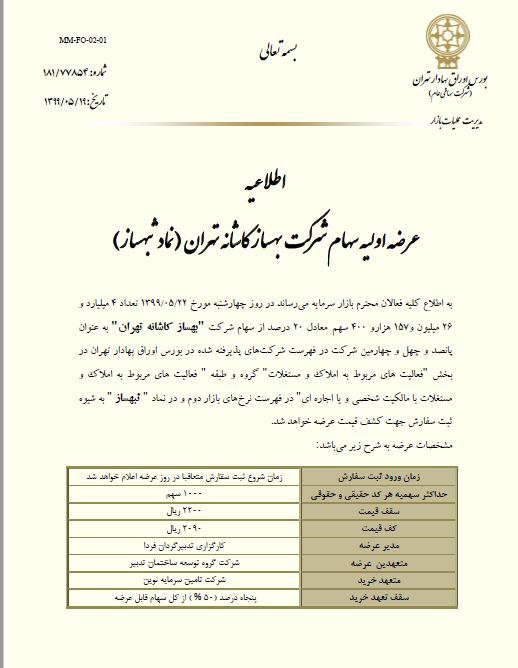 MM-FO-02-01
بسمه تعالی
شماره: ۱۸۱/۷۷۸۵۴
تاریخ: ۱۳۹۹/۰۵/۱۹
بورس اوراق بهادار تهران
(شرکت سهامی عام)
مدیریت عملیات بازار
اطلاعیه
عرضه اولیه سهام شرکت بهساز کاشانه تهران (نماد ثبهساز)
به اطلاع کلیه فعالان محترم بازار سرمایه می‌رساند در روز چهارشنبه مورخ ۱۳۹۹/۰۵/۲۲ تعداد ۴ میلیارد و
۲۶ میلیون و ۱۵۷ هزارو ۴۰۰ سهم معادل ۲۰ درصد از سهام شرکت "بهساز کاشانه تهران" به عنوان
پانصد و چهل و چهارمین شرکت در فهرست شرکت‌های پذیرفته شده در بورس اوراق بهادار تهران در
بخش "فعالیت های مربوط به املاک و مستغلات" گروه و طبقه " فعالیت های مربوط به املاک و
مستغلات با مالکیت شخصی و یا اجاره ای" در فهرست نرخ‌های بازار دوم و در نماد " ثبهساز " به شیوه
ثبت سفارش جهت کشف قیمت عرضه خواهد شد.
مشخصات عرضه به شرح زیر می‌باشد:
زمان ورود ثبت سفارش زمان شروع ثبت سفارش متعاقبا در روز عرضه اعلام خواهد شد
حداکثر سهمیه هر کد حقیقی و حقوقی ۱۰۰۰ سهم
سقف قیمت ۲۲۰۰ ریال
کف قیمت ۲۰۹۰ ریال
مدیر عرضه کارگزاری تدبیرگردان فردا
متعهدین عرضه شرکت گروه توسعه ساختمان تدبیر
متعهد خرید شرکت تامین سرمایه نوین
سقف تعهد خرید پنجاه درصد (۵۰ %) از کل سهام قابل عرضه